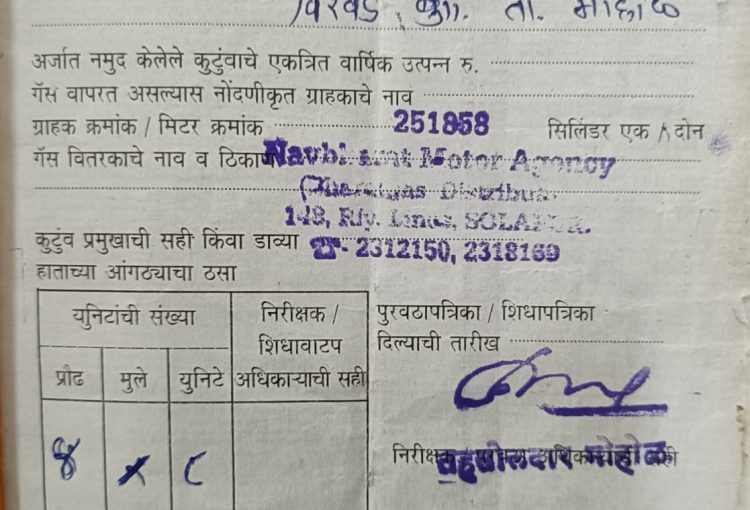 ता. मोहोळ
अर्जात नमुद केलेले कुटुंबाचे एकत्रित वार्षिक उत्पन्न रु.
गॅस वापरत असल्यास नोंदणीकृत ग्राहकाचे नाव
ग्राहक क्रमांक / मिटर क्रमांक 251858 सिलिंडर एक / दोन
गॅस वितरकाचे नाव व ठिकाण Navbharat Motor Agency
Bharatgas Distributor
148, Rly. Lines, SOLAPUR.
कुटुंब प्रमुखाची सही किंवा डाव्या ☎- 2312150, 2318169
हाताच्या आंगठ्याचा ठसा
युनिटांची संख्या
निरीक्षक /
शिधावाटप
अधिकाऱ्याची सही
प्रौढ मुले युनिटे
पुरवठापत्रिका / शिधापत्रिका
दिल्याची तारीख
निरीक्षक सही
तहसीलदार मोहोळ